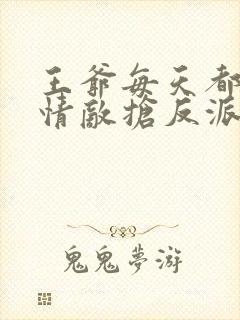 王爺每天都
情敵搶反派
鬼鬼夢游